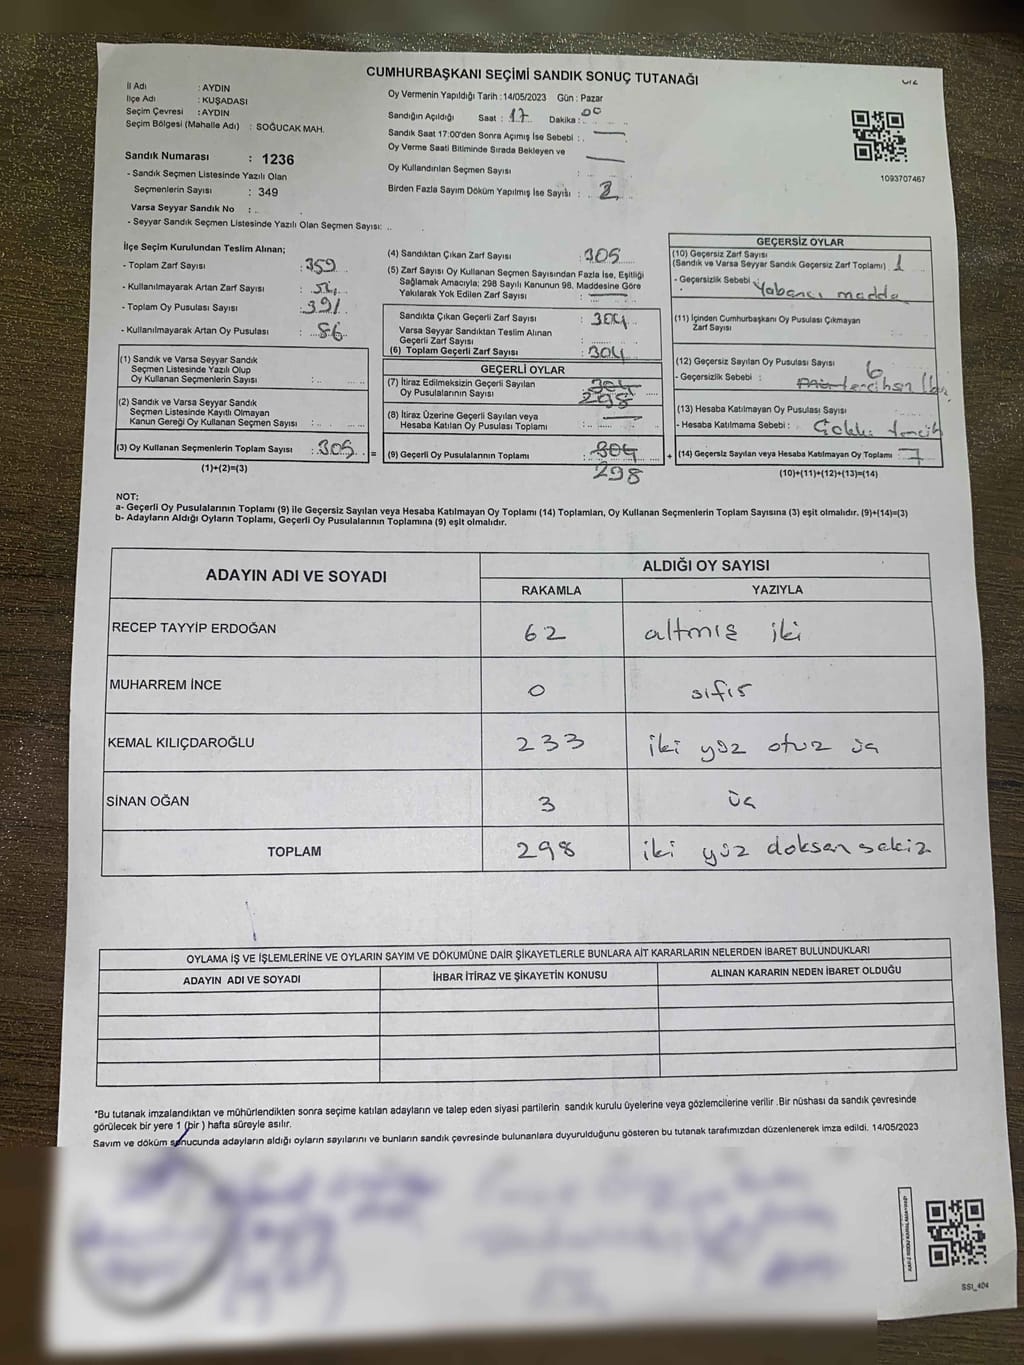 CUMHURBAŞKANI SEÇİMİ SANDIK SONUÇ TUTANAĞI
İl Adı : AYDIN
İlçe Adı : KUŞADASI
Seçim Çevresi : AYDIN
Seçim Bölgesi (Mahalle Adı) : SOĞUCAK MAH.
Sandık Numarası : 1236
- Sandık Seçmen Listesinde Yazılı Olan
Seçmenlerin Sayısı : 349
Varsa Seyyar Sandık No :
- Seyyar Sandık Seçmen Listesinde Yazılı Olan Seçmen Sayısı:
Oy Vermenin Yapıldığı Tarih :14/05/2023 Gün : Pazar
Sandığın Açıldığı Saat : 17 Dakika : 00
Sandık Saat 17:00'den Sonra Açımış İse Sebebi :
Oy Verme Saati Bitiminde Sırada Bekleyen ve
Oy Kullandırılan Seçmen Sayısı :
Birden Fazla Sayım Döküm Yapılmış İse Sayısı : 2
1093707467
İlçe Seçim Kurulundan Teslim Alınan;
- Toplam Zarf Sayısı : 359
- Kullanılmayarak Artan Zarf Sayısı :
- Toplam Oy Pusulası Sayısı : 391
- Kullanılmayarak Artan Oy Pusulası : 86
(1) Sandık ve Varsa Seyyar Sandık
Seçmen Listesinde Yazılı Olup
Oy Kullanan Seçmenlerin Sayısı :
(2) Sandık ve Varsa Seyyar Sandık
Seçmen Listesinde Kayıtlı Olmayan
Kanun Gereği Oy Kullanan Seçmen Sayısı :
(3) Oy Kullanan Seçmenlerin Toplam Sayısı : 305 =
(1)+(2)=(3)
(4) Sandıktan Çıkan Zarf Sayısı : 305
(5) Zarf Sayısı Oy Kullanan Seçmen Sayısından Fazla İse, Eşitliği
Sağlamak Amacıyla; 298 Sayılı Kanunun 98. Maddesine Göre
Yakılarak Yok Edilen Zarf Sayısı :
Sandıkta Çıkan Geçerli Zarf Sayısı : 304
Varsa Seyyar Sandıktan Teslim Alınan
Geçerli Zarf Sayısı :
(6) Toplam Geçerli Zarf Sayısı : 304
GEÇERLİ OYLAR
(7) İtiraz Edilmeksizin Geçerli Sayılan
Oy Pusulalarının Sayısı : 304
298
(8) İtiraz Üzerine Geçerli Sayılan veya
Hesaba Katılan Oy Pusulası Toplamı :
(9) Geçerli Oy Pusulalarının Toplamı : 304 +
298
GEÇERSİZ OYLAR
(10) Geçersiz Zarf Sayısı
(Sandık ve Varsa Seyyar Sandık Geçersiz Zarf Toplamı) : 1
- Geçersizlik Sebebi : Yabancı madde
(11) İçinden Cumhurbaşkanı Oy Pusulası Çıkmayan
Zarf Sayısı :
(12) Geçersiz Sayılan Oy Pusulası Sayısı : 6
- Geçersizlik Sebebi :
(13) Hesaba Katılmayan Oy Pusulası Sayısı :
- Hesaba Katılmama Sebebi : Çoklu tercih
(14) Geçersiz Sayılan veya Hesaba Katılmayan Oy Toplamı : 7
(10)+(11)+(12)+(13)=(14)
NOT:
a- Geçerli Oy Pusulalarının Toplamı (9) ile Geçersiz Sayılan veya Hesaba Katılmayan Oy Toplamı (14) Toplamları, Oy Kullanan Seçmenlerin Toplam Sayısına (3) eşit olmalıdır. (9)+(14)=(3)
b- Adayların Aldığı Oyların Toplamı, Geçerli Oy Pusulalarının Toplamına (9) eşit olmalıdır.
ADAYIN ADI VE SOYADI ALDIĞI OY SAYISI
RAKAMLA YAZIYLA
RECEP TAYYİP ERDOĞAN 62 altmış iki
MUHARREM İNCE 0 sıfır
KEMAL KILIÇDAROĞLU 233 iki yüz otuz üç
SİNAN OĞAN 3 üç
TOPLAM 298 iki yüz doksan sekiz
OYLAMA İŞ VE İŞLEMLERİNE VE OYLARIN SAYIM VE DÖKÜMÜNE DAİR ŞİKAYETLERLE BUNLARA AİT KARARLARIN NELERDEN İBARET BULUNDUKLARI
ADAYIN ADI VE SOYADI İHBAR İTİRAZ VE ŞİKAYETİN KONUSU ALINAN KARARIN NEDEN İBARET OLDUĞU
*Bu tutanak imzalandıktan ve mühürlendikten sonra seçime katılan adayların ve talep eden siyasi partilerin sandık kurulu üyelerine veya gözlemcilerine verilir .Bir nüshası da sandık çevresinde
görülecek bir yere 1 (bir ) hafta süreyle asılır.
Sayım ve döküm sonucunda adayların aldığı oyların sayılarını ve bunların sandık çevresinde bulunanlara duyurulduğunu gösteren bu tutanak tarafımızdan düzenlenerek imza edildi. 14/05/2023
SSI_404